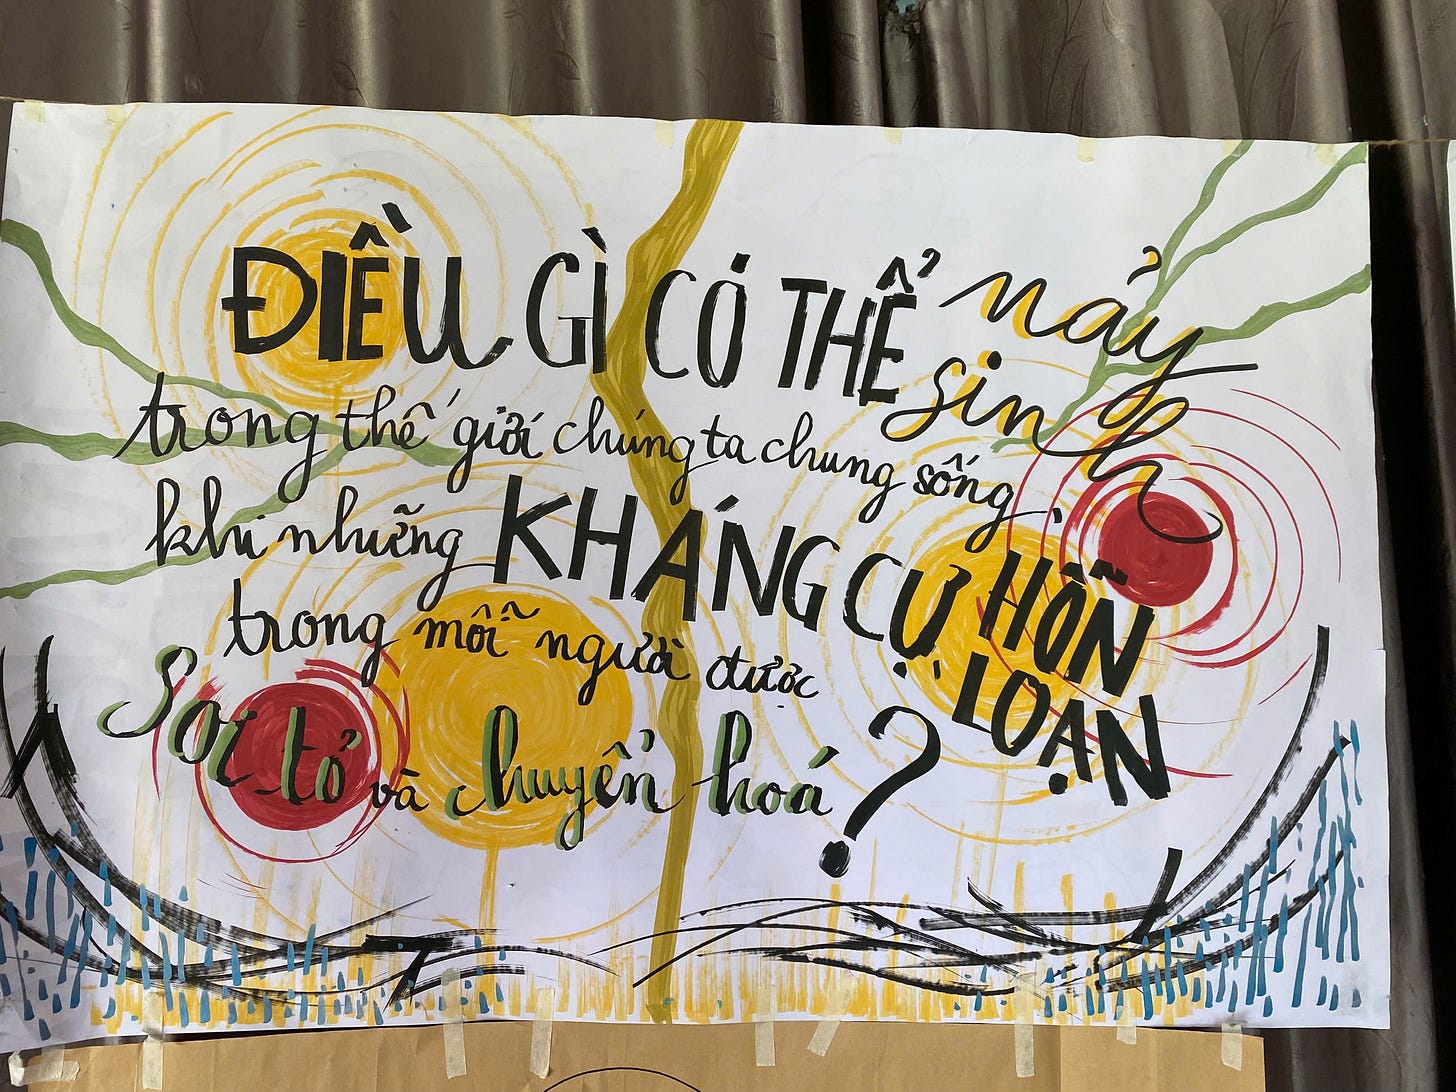 ĐIỀU GÌ CÓ THỂ nảy sinh
trong thế giới chúng ta chung sống
khi những KHÁNG CỰ, HỖN LOẠN
trong mỗi người được
Soi tỏ và chuyển hoá?